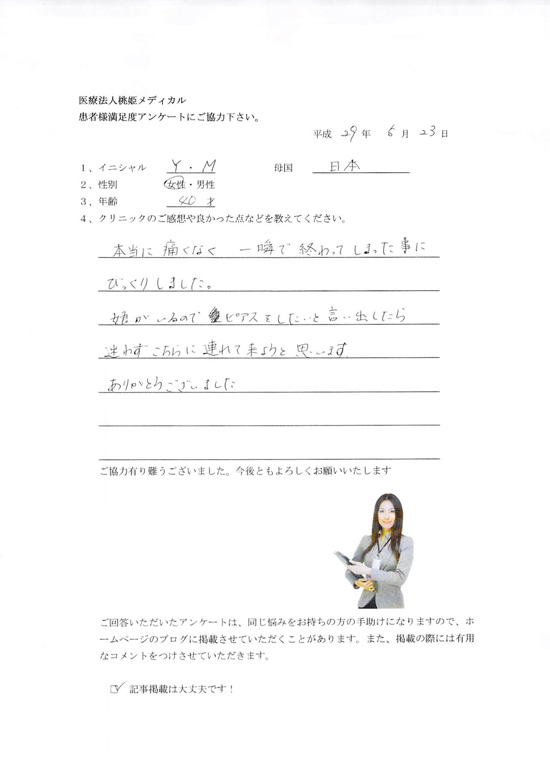 医療法人桃姫メディカル
患者様満足度アンケートにご協力下さい。
平成 29 年 6 月 23 日
1、イニシャル Y・M 母国 日本
2、性別 女性・男性
3、年齢 40才
4、クリニックのご感想や良かった点などを教えてください。
本当に痛くなく 一瞬で終わってしまった事に
びっくりしました。
娘がいるので ピアスをしたいと言い出したら
迷わずこちらに連れて来ようと思います
ありがとうございました
ご協力有り難うございました。今後ともよろしくお願いいたします
ご回答いただいたアンケートは、同じ悩みをお持ちの方の手助けになりますので、ホ
ームページのブログに掲載させていただくことがあります。また、掲載の際には有用
なコメントをつけさせていただきます。
☑ 記事掲載は大丈夫です！